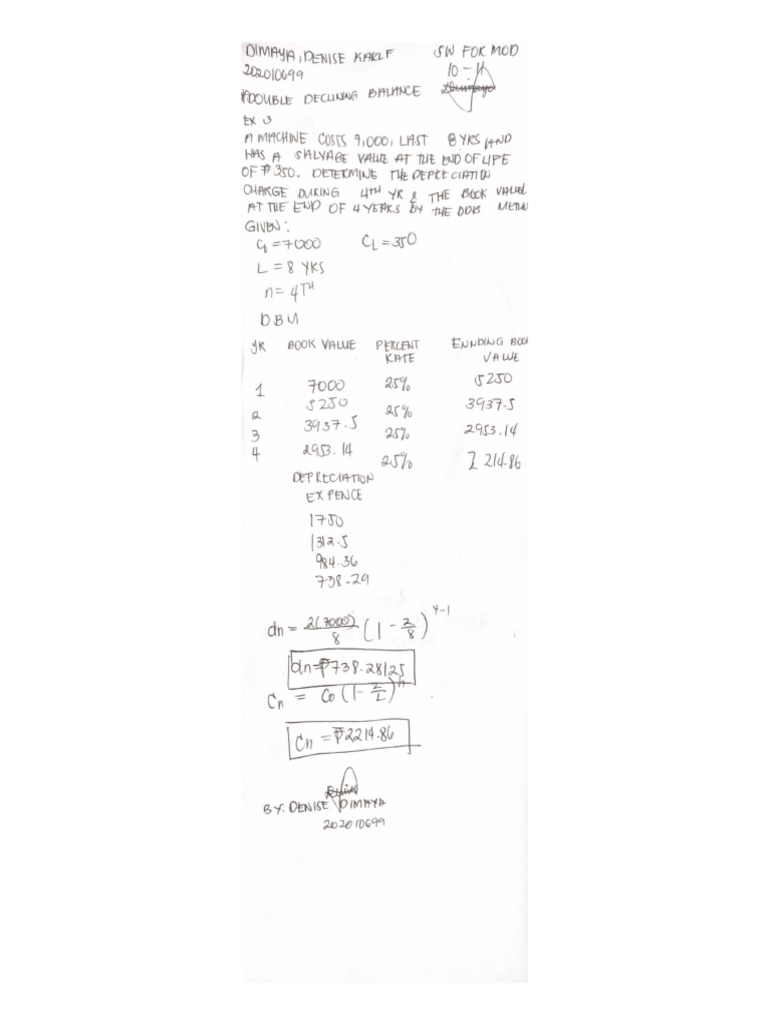 DIMAYA, DENISE KARL F SW FOR MOD
202010699 10-11
DOUBLE DECLINING BALANCE
EX 3
A MACHINE COSTS 9,000, LAST 8 YRS AND
HAS A SALVAGE VALUE AT THE END OF LIFE
OF ₱350. DETERMINE THE DEPRECIATION
CHARGE DURING 4TH YR & THE BOOK VALUE
AT THE END OF 4 YEARS BY THE DDB
GIVEN:
C₀ = 7000 CL = 350
L = 8 YRS
n = 4TH
DBM
YR BOOK VALUE PERCENT RATE ENNDING BOOK VALUE
1 7000 25% 5250
2 5250 25% 3937.5
3 3937.5 25% 2953.14
4 2953.14 25% 2 214.86
DEPRECIATION
EXPENCE
1750
1312.5
984.36
738.29
dn = 2(7000)/8 (1 - 2/8)^4-1
dn = ₱738.28125
Cn = Co (1 - 2/L)^n
Cn = ₱2214.86
BY: DENISE DIMAYA
202010699